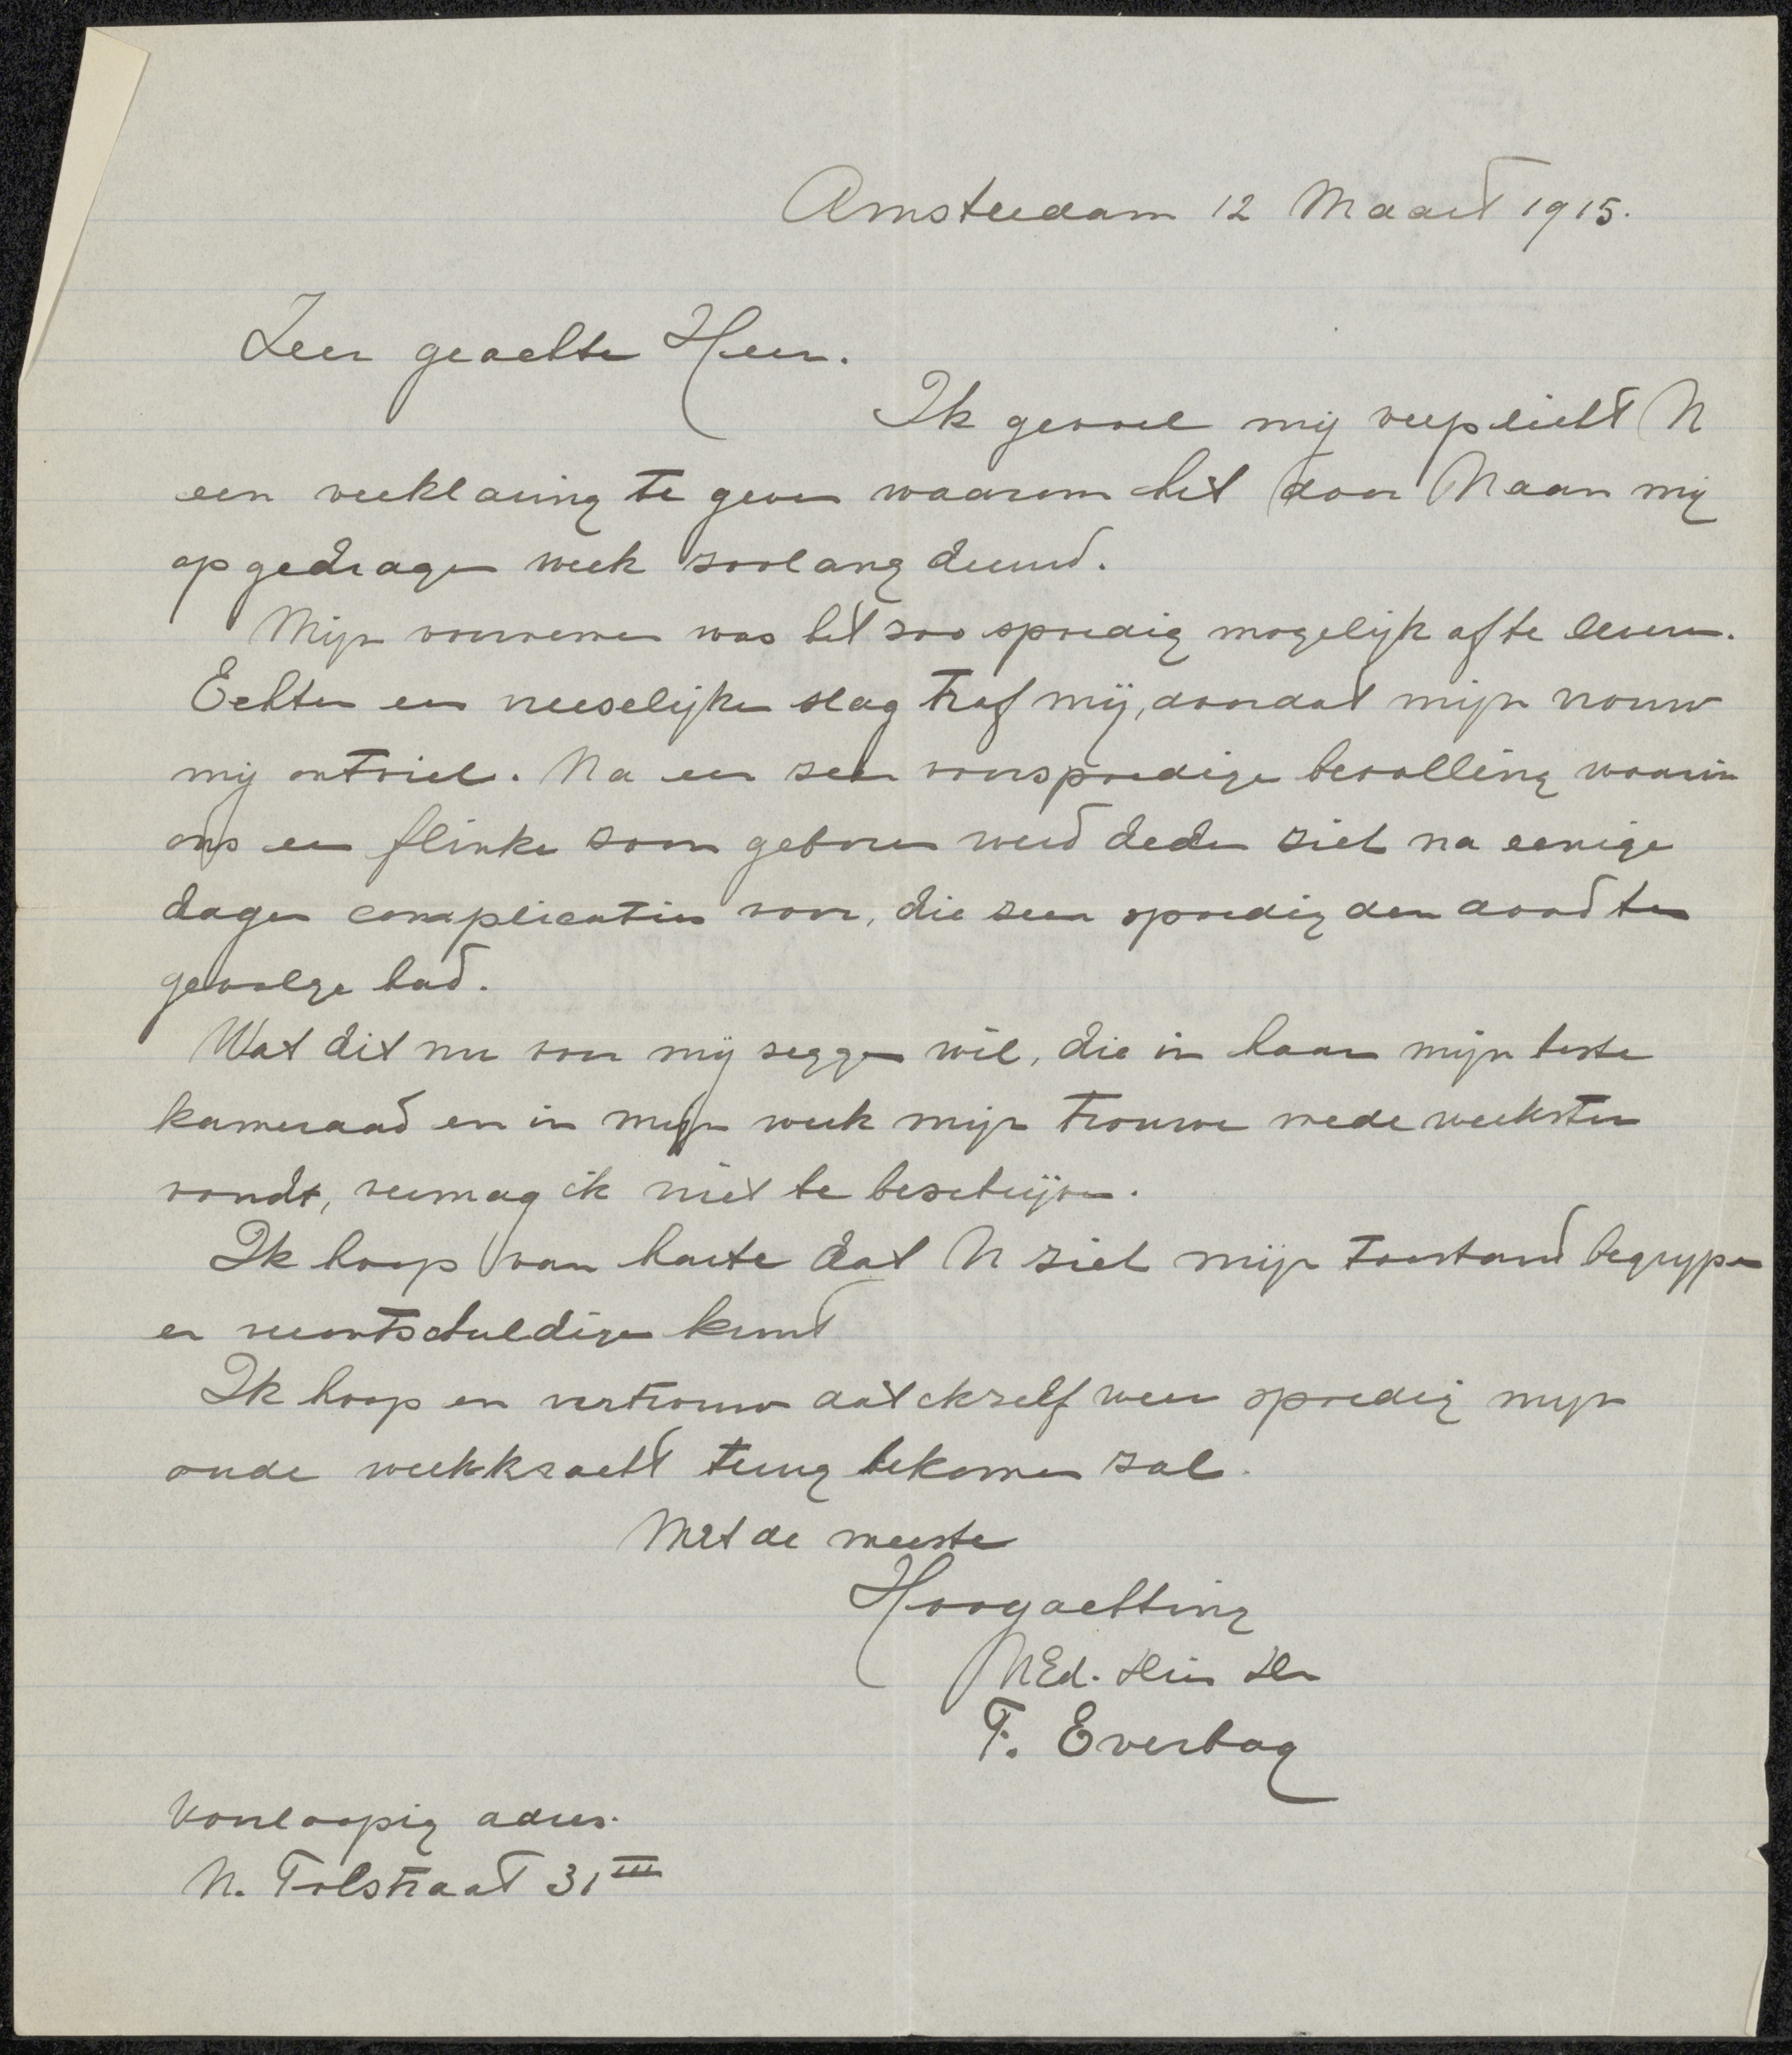 Amsterdam 12 Maart 1915.
Zeer geachte Heer.
Ik gevoel mij verplicht U
een verklaring te geven waarom het door U aan mij
opgedragen werk zoolang duurd.
Mijn voornemen was het zoo spoedig mogelijk af te leveren.
Echter een vreeselijke slag trof mij, doordat mijn vrouw
mij ontviel. Na een zeer voorspoedige bevalling waarin
ons een flinke zoon geboren werd deden zich na eenige
dagen complicaties voor, die zeer spoedig den dood ten
gevolge had.
Wat dit nu voor mij zeggen wil, die in haar mijn beste
kameraad en in mijn werk mijn trouwe medewerkster
vondt, vermag ik niet te beschrijven.
Ik hoop van harte dat U zich mijn toestand begrypen
en verontschuldigen kunt
Ik hoop en vertrouw dat ikzelf weer spoedig myn
oude werkkracht terug bekomen zal.
Met de meeste
Hoogachting
UEd. Dien Dr
F. Everbag
Voorloopig adres.
N. Tolstraat 31 III